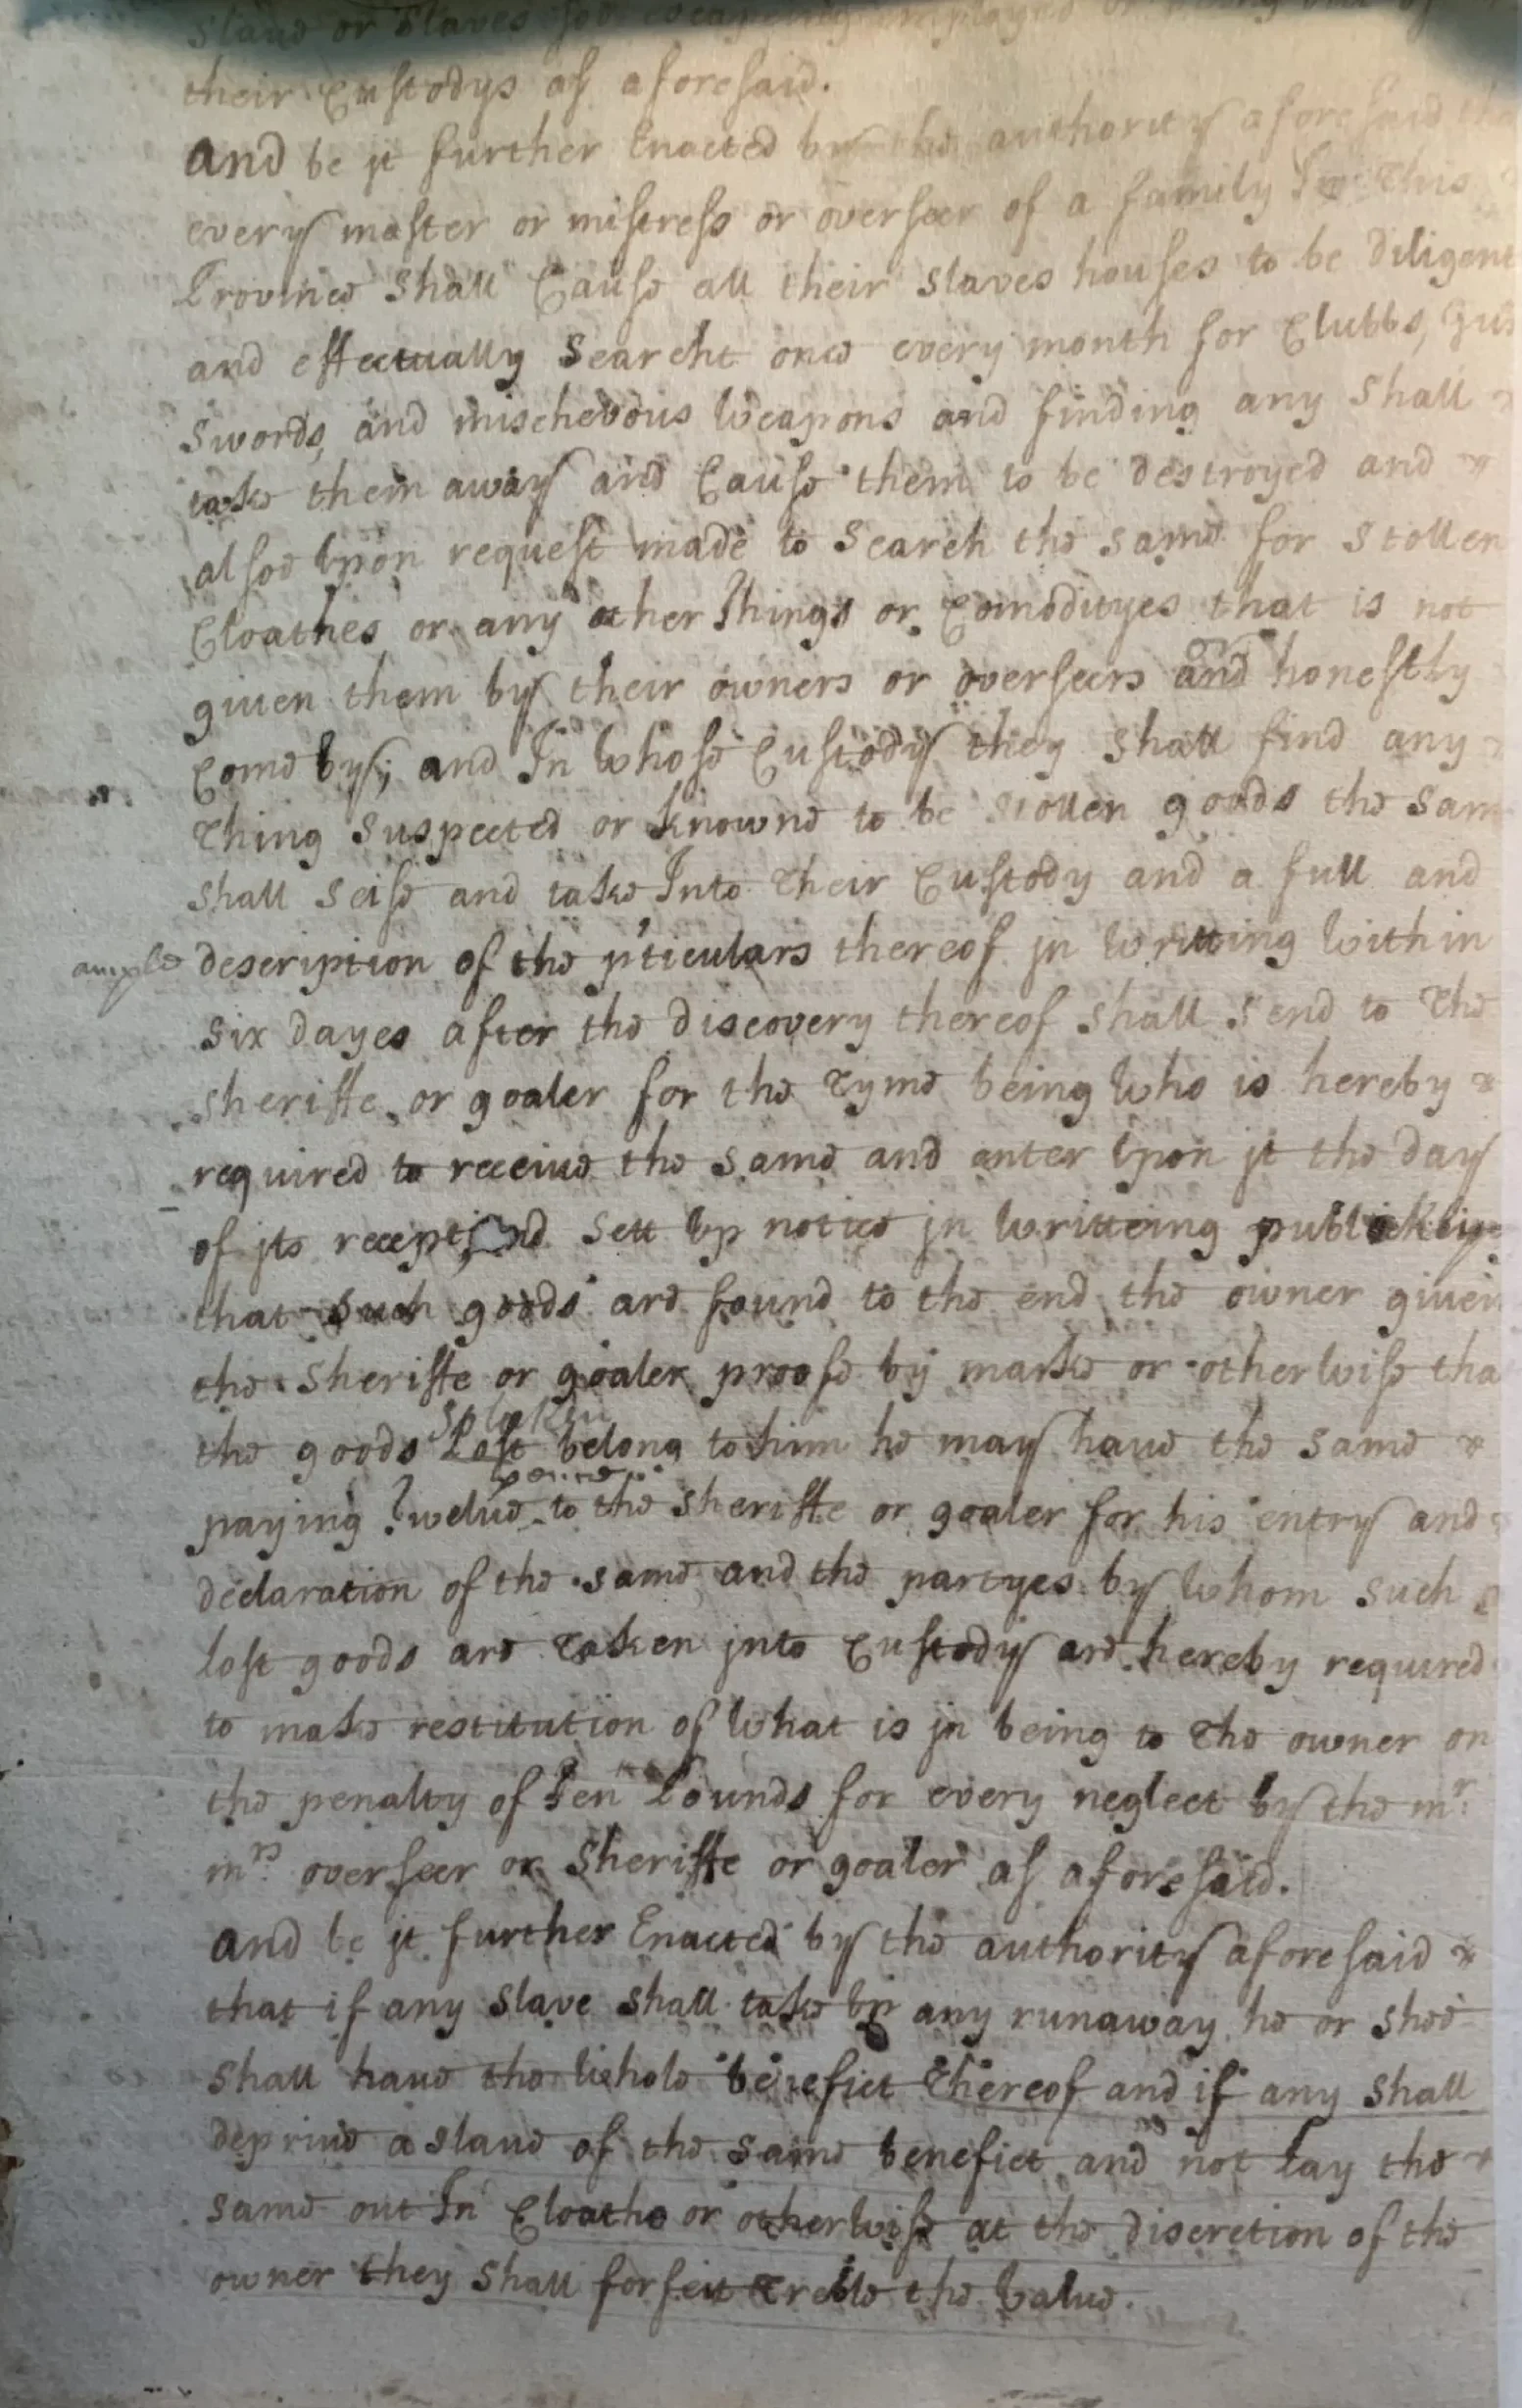 slave or slaves soe escaping employed or being out of
their Custodys as aforesaid.
And be it further Enacted by the authority aforesaid tha
every master or mistress or overseer of a family In This
Province shall Cause all their slaves houses to be diligent
and effectually Searcht once every month for Clubbs, Gu
Swords, and mischevous Weapons and finding any Shall
take them away and Cause them to be destroyed and
alsoe Upon request made to Search the same for Stollen
Cloathes or any other Things or Comodityes that is not
given them by their owners or overseers and honestly
or
Come by; and In Whose Custody they shall find any
Thing Suspected or knowne to be stollen goods the Sam
shall seise and take Into Their Custody and a full and
ample description of the p'ticulars thereof in Writting Within
Six dayes after the discovery thereof shall Send to The
sheriffe or goaler for the Tyme being Who is hereby
required to receive the same and enter Upon it the day
of its receipt, nd Sett Up notice in Writteing publickly
that such goods are found to the end the owner given
the sheriffe or goaler proofe by marke or otherwise tha
Spoken
the goods Lost belong to him he may have the same
paying Twelve to the sheriffe or goaler for his entry and
declaration of the same and the partyes by Whom such
lost goods are Taken into Custody are hereby required
to make restitution of What is in being to The owner on
the penalty of Ten Pounds for every neglect by the mr
mrs overseer or Sheriffe or goaler as aforesaid.
And be it further Enacted by the authority aforesaid
that if any slave shall take Up any runaway he or shee
shall have the Whole benefict Thereof and if any shall
deprive a slave of the same benefict and not Lay the
same out In Cloaths or otherwise at the discretion of the
owner they shall forfeit Treble the Value.